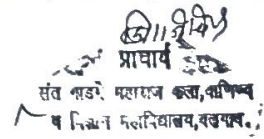 प्राचार्य
संत गाडगे महाराज कला, वाणिज्य
व विज्ञान महाविद्यालय,